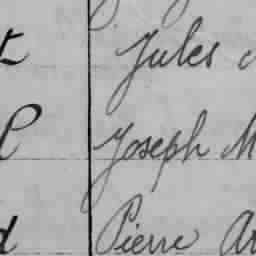 t Jules
l Joseph M
d Pierre Ar